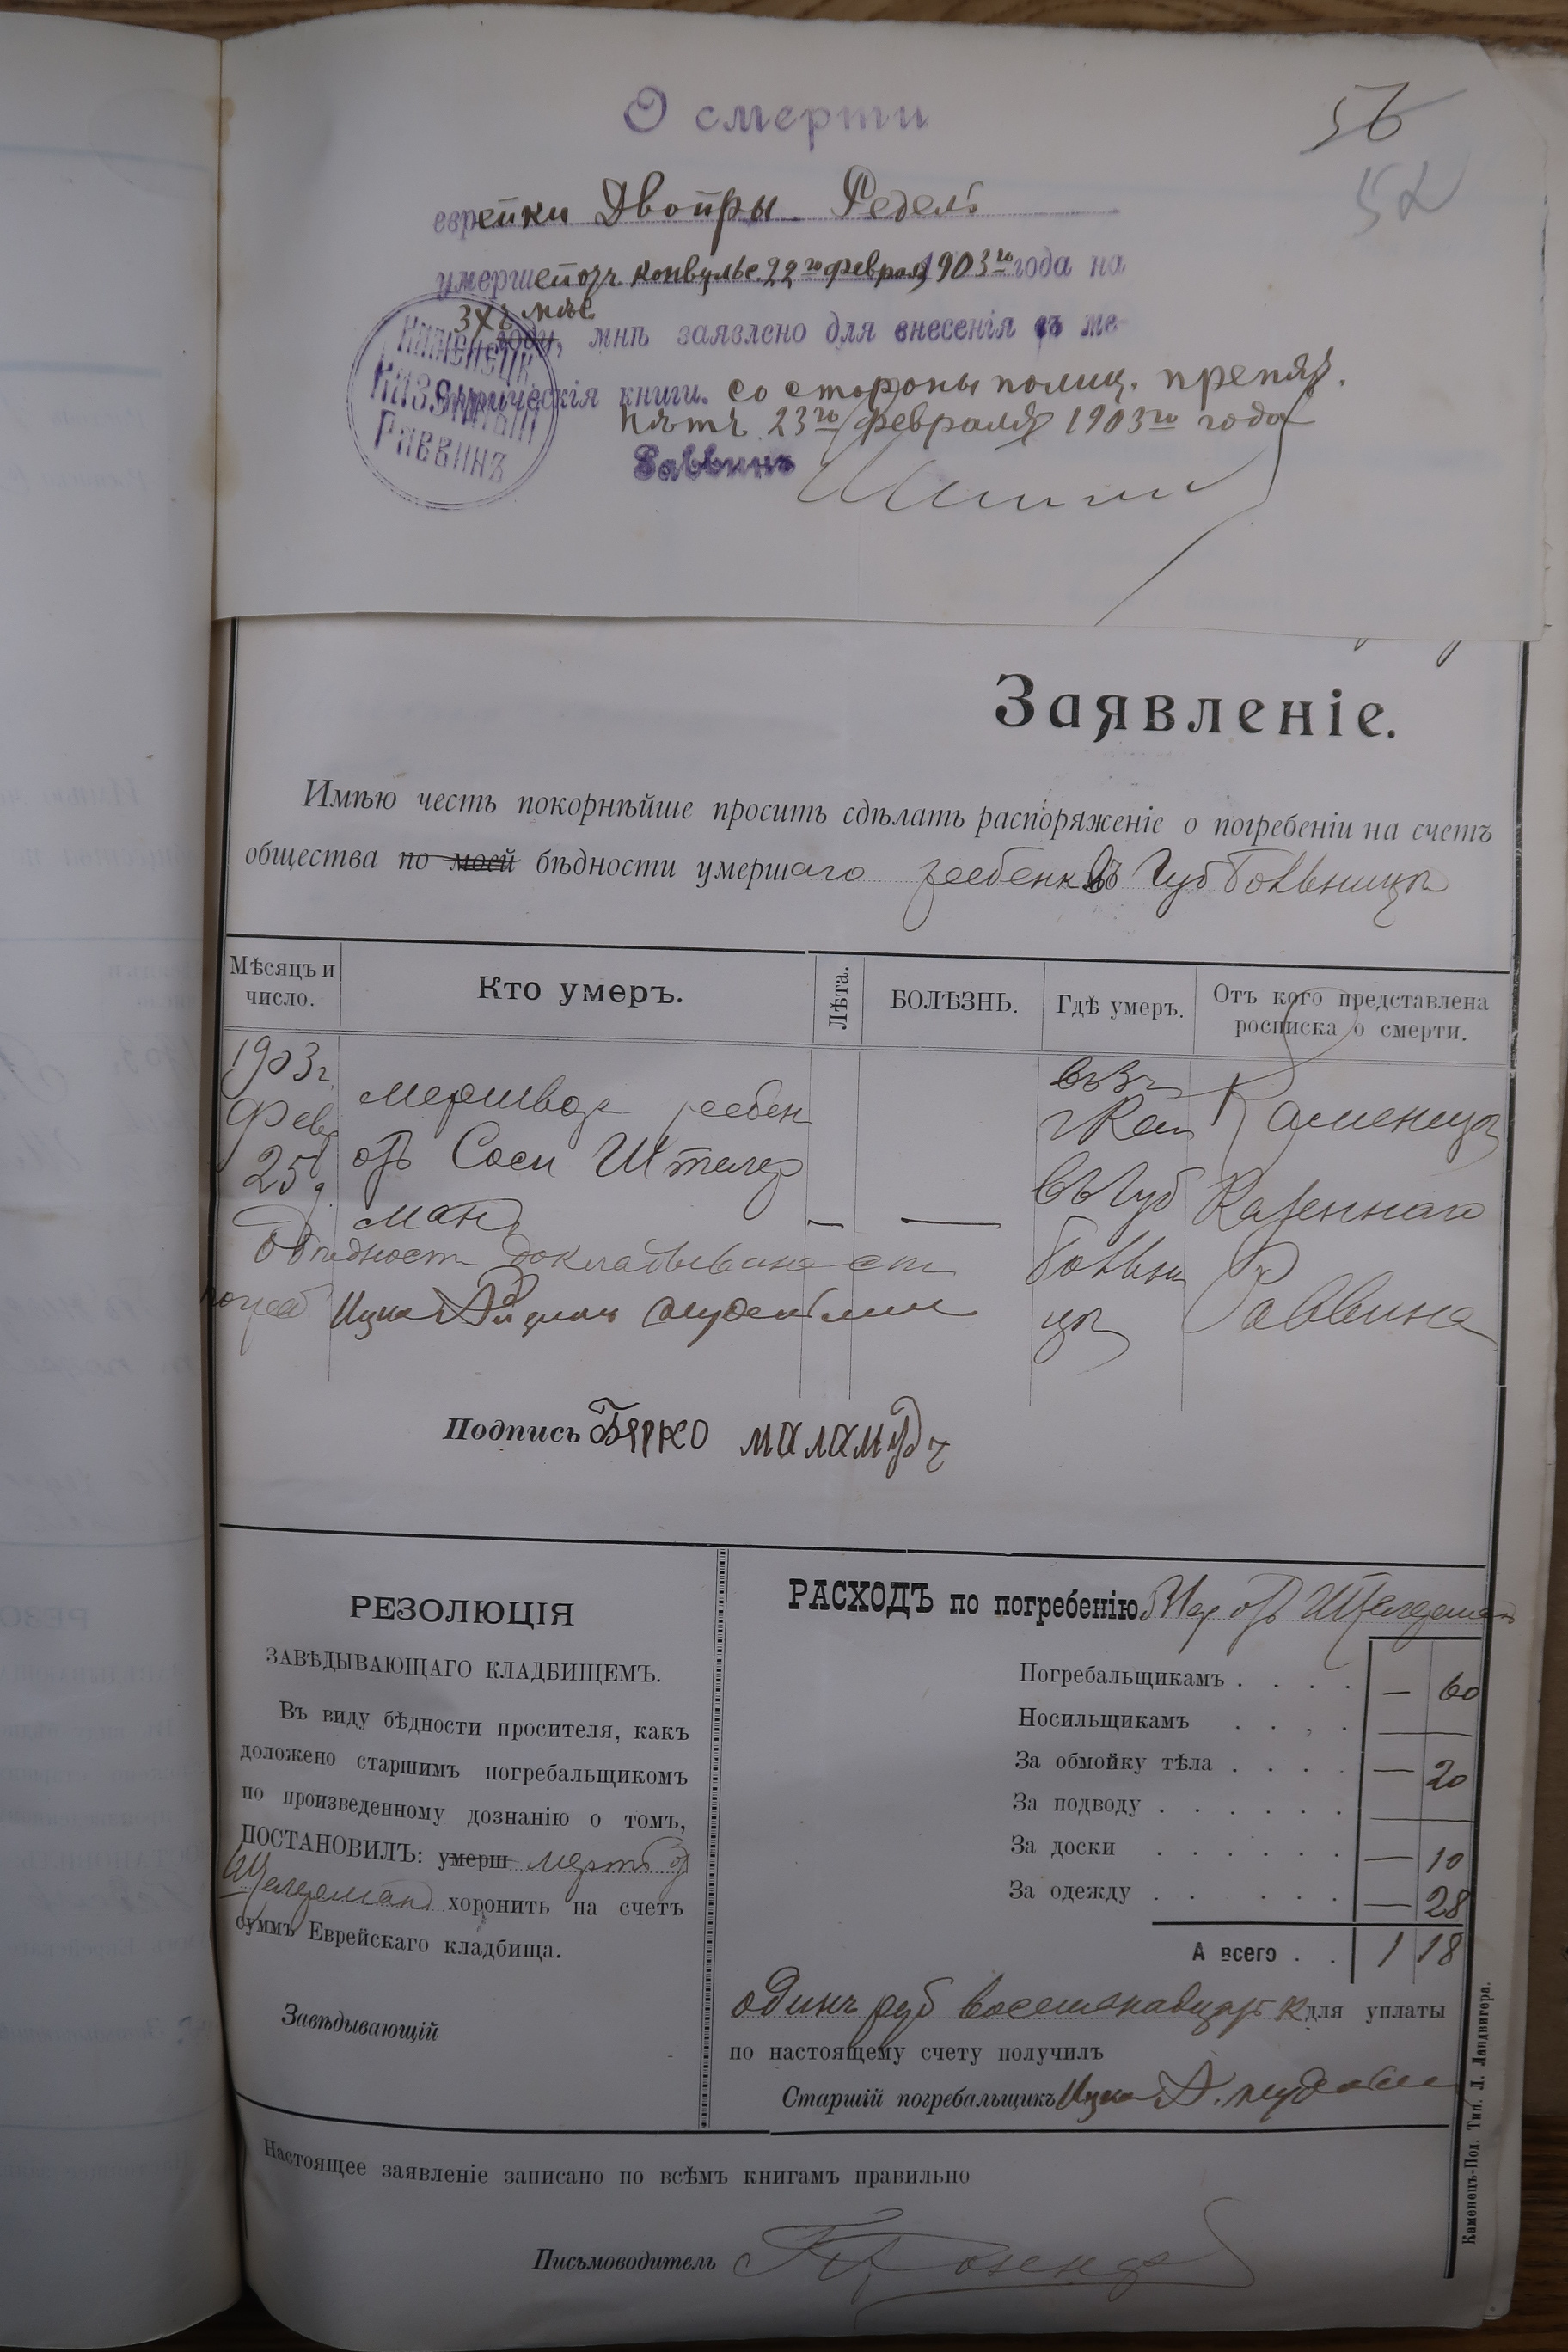 О смерти
56
52
еврейки Двойры Федель
умершей отъ конвульс. 22го февраля 1903го года на
3хъ мѣс
году, мнѣ заявлено для внесенія въ ме-
трическія книги. со стороны полиц. препят.
нѣтъ 23го февраля 1903го года
Раввинъ
КАМЕНЕЦК.
КАЗЕННЫЙ
РАВВИНЪ
Заявленіе.
Имѣю честь покорнѣйше просить сдѣлать распоряженіе о погребеніи на счетъ
общества по моей бѣдности умершаго ребенка въ Губ Больницы
Мѣсяцъ и число.
Кто умеръ.
Лѣта.
БОЛѢЗНЬ.
Гдѣ умеръ.
Отъ кого представлена росписка о смерти.
1903 г.
Фев
25
мертвор ребен
отъ Соси Штелер
ман
— —
г Кам
въ Губ
Больни
цы
Каменецк
Казеннаго
Раввина
О бѣдности докладывал ст
погреб Ицко
Подпись Бярко маламудъ
РЕЗОЛЮЦІЯ
ЗАВѢДЫВАЮЩАГО КЛАДБИЩЕМЪ.
Въ виду бѣдности просителя, какъ
доложено старшимъ погребальщикомъ
по произведенному дознанію о томъ,
ПОСТАНОВИЛЪ: умерш мертв
хоронить на счетъ
суммъ Еврейскаго кладбища.
Завѣдывающій
РАСХОДЪ по погребенію
Погребальщикамъ . . . . — 60
Носильщикамъ . . , . —
За обмойку тѣла . . . . — 20
За подводу . . . . . .
За доски . . . . . . — 10
За одежду . . . . . — 28
А всего . . 1 18
одинъ руб восемнадцать к для уплаты
по настоящему счету получилъ
Старшій погребальщикъ Ицко А.
Настоящее заявленіе записано по всѣмъ книгамъ правильно
Письмоводитель
Каменецъ-Под. Тип. Л. Ландвигера.